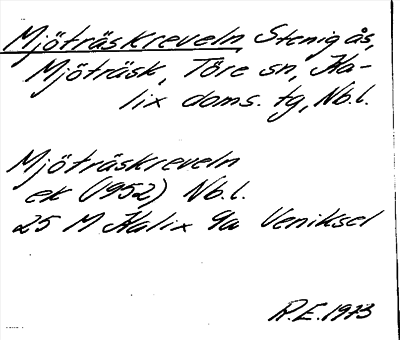 Mjöträskreveln Stenig ås,
Mjöträsk, Töre sn, Ka-
lix doms. tg, Nb.l.
Mjöträskreveln
ek (1952) Nb.l.
25 M Kalix 9a Veniksel
R.E. 1973